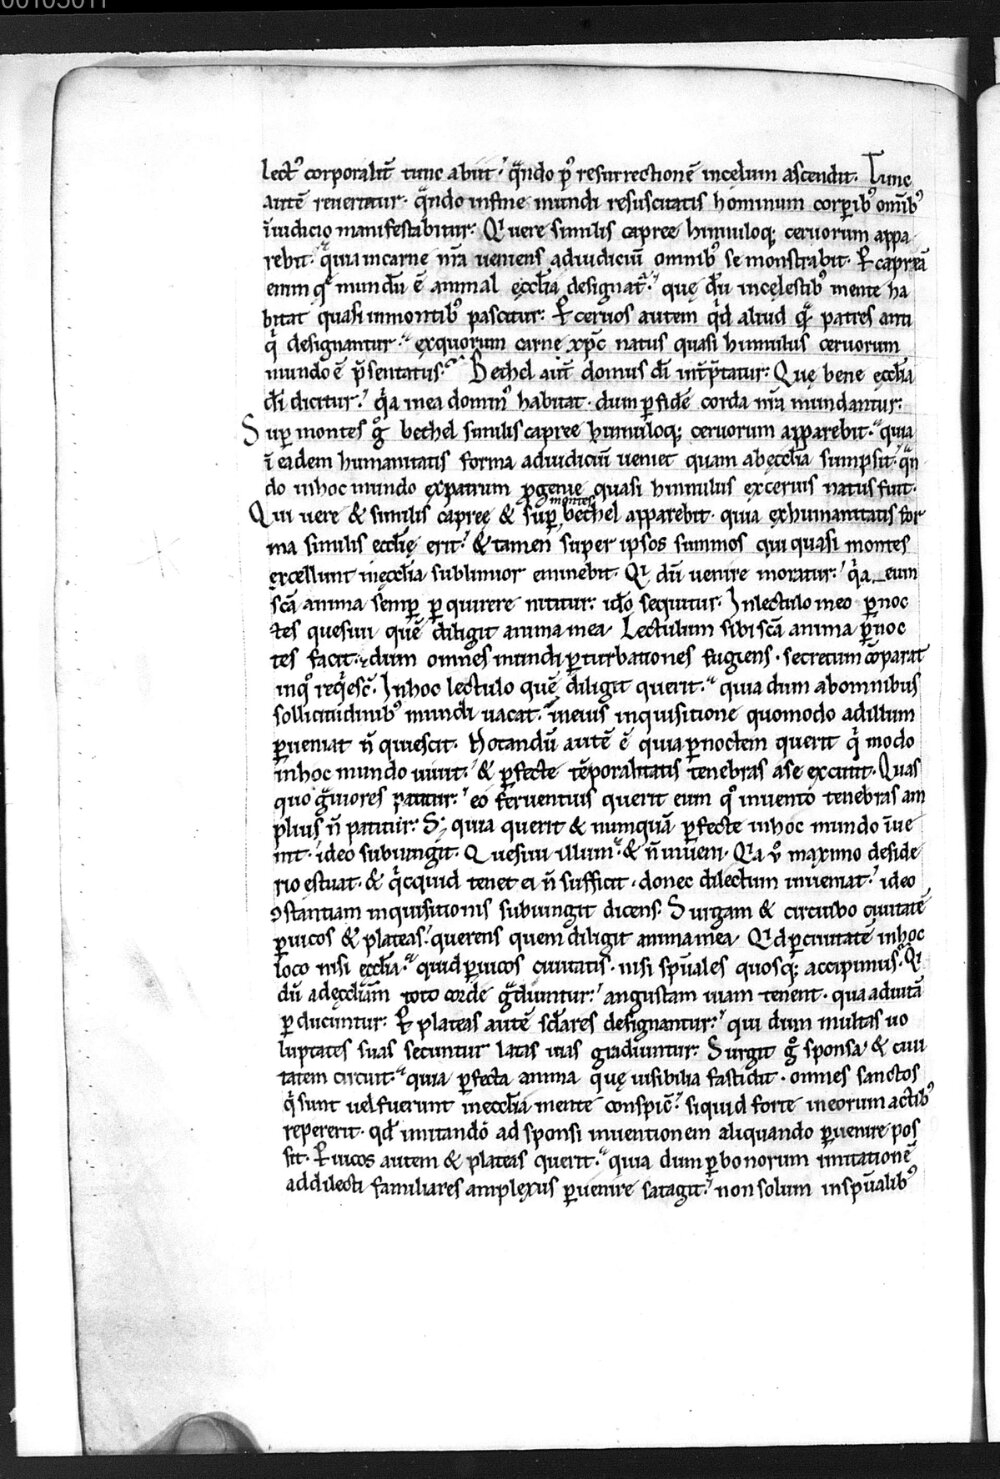 lect᷒ corporalit̄ tunc abiit. qͣndo p᷒ resurrectionē incelum ascendit. Tunc
autē reuertetur. qͣndo infine mundi resuscitatis hominum corꝑib᷒ omīb᷒
īiudicio manifestabitur. Qͥ uere similis capree hinnuloq; ceruorum appa
rebit. qͥuia incarne nrā ueniens adiudiciū omnib᷒ se monstrabit. Et capreā
enim qͥ mundū ē animal ęcclīa designat᷒. quę dū incęlestib᷒ mente ha
bitat quasi inmontib᷒ pascitur. Et ceruos autem qͥd aliud qͣ patres anti
qͥ designantur. exquorum carne xp̄c natus quasi hinnulus ceruorum
mundo ē p̄sentatus. Bethel aut̄ domus dī int̄p̄tatur. Quę bene ęcclīa
dī dicitur. qͥa inea domin᷒ habitat. dum ꝑfidē corda nrā mundantur.
Suꝑ montes gͦ bethel similis capree hinnuloq; ceruorum apparebit. quia
ī eadem humanitatis forma adiudiciū ueniet quam abęcclīa sumpsit. qͣn
do inhoc mundo expatrum ꝓgenie quasi hinnulus exceruis natus fuit.
Qui uere & similis capreę & suꝑ montes bethel apparebit. quia exhumanitatis for
ma similis ecclīę erit. & tamen super ipsos summos qui quasi montes
excellunt inęcclīa sublimior eminebit. Qͥ dū uenire moratur. qͥa eum
scā anima semꝑ ꝑquirere nititur. idō sequitur. Inlectulo meo ꝑnoc
tes quesiui quē diligit anima mea. Lectulum sibi scā anima ꝑnoc
tes facit. dum omnes mundi ꝑturbationes fugiens. secretum cōparat
inqͦ reqͥesc̄. Inhoc lectulo quē diligit querit. quia dum abomnibus
sollicitudinib᷒ mundi uacat. īneius inquisitione quomodo adillum
ꝑueniat n̄ quiescit. Notandū autē ē quia ꝑnoctem querit qͥ modo
inhoc mundo uiuit. & ꝑfecte tēporalitatis tenebras ase excutit. Quas
quo gͣuiores patitur. eo feruentius querit eum qͦ inuento tenebras am
plius n̄ patitur. S; quia querit & numquā ꝑfecte inhoc mundo īue
nit. ideo subiungit. Quesiui illum. & n̄ inueni. Qͥa u᷒ maximo deside
rio estuat. & qͥcquid tenet ei n̄ sufficit. donec dilectum inueniat. ideo
ꝯstantiam inquisitionis subiungit dicens. Surgam & circuibo ciuitatē
ꝑuicos & plateas. querens quem diligit anima mea. Qͥd ꝑciuitatē inhoc
loco nisi ecclīa. quid ꝑuicos ciuitatis. nisi spūales quosq; accipimus. Qͥ
dū adęcclīam toto corde gͣdiuntur. angustam uiam tenent. qua aduitā
ꝑducuntur. Et plateas autē sclares designantur. qui dum multas uo
luptates suas secuntur latas uias gradiuntur. Surgit gͦ sponsa & ciui
tatem circuit. quia ꝑfecta anima quę uisibilia fastidit. omnes sanctos
qͥ sunt uel fuerunt inecclīa mente conspic̄. siquid forte ineorum actib᷒
repererit. qd̄ imitandō ad sponsi inuentionem aliquando ꝑuenire pos
sit. Et uicos autem & plateas querit. quia dum ꝑbonorum imitationē
addilecti familiares amplexus ꝑuenire satagit. non solum inspūalib᷒